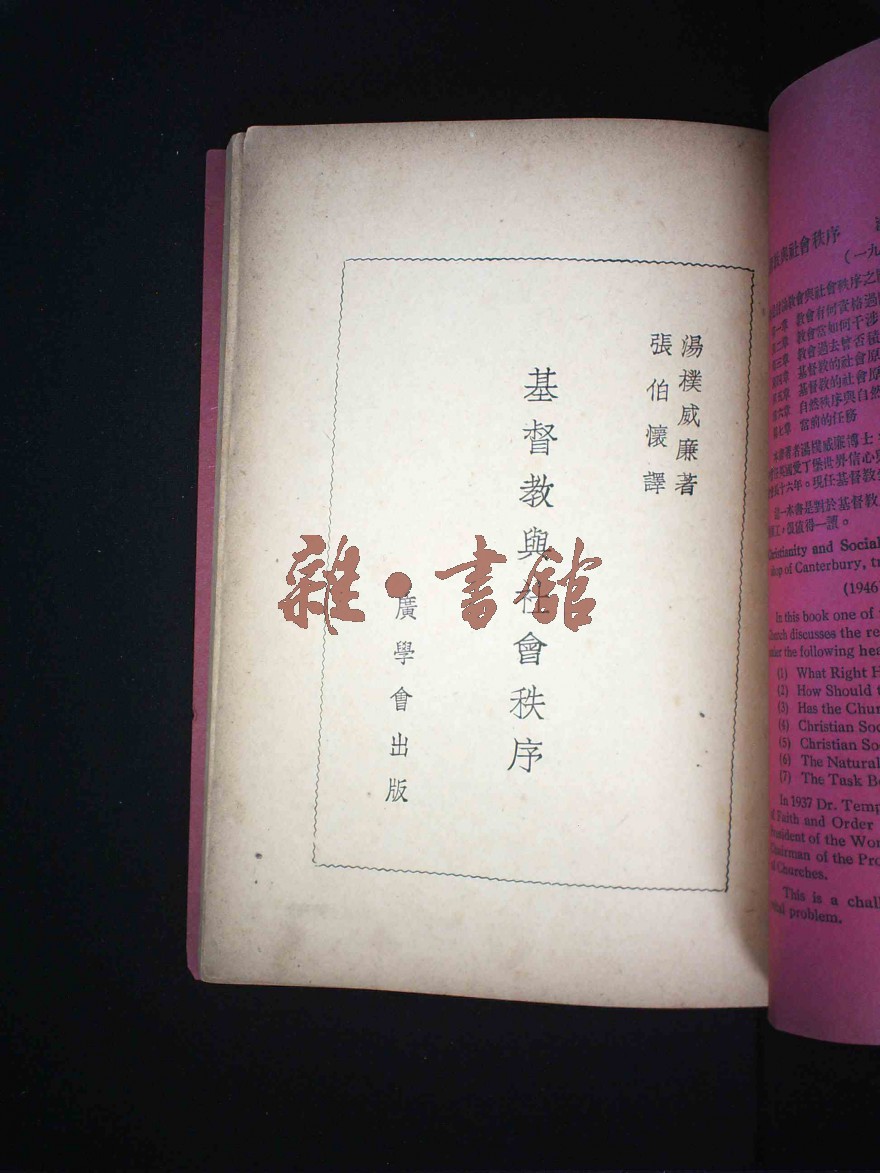 湯樸威廉著
張伯懷譯
基督教與社會秩序
廣學會出版
雜・書館
教與社會秩序
(一九
教會與社會秩序之
第一章 教會有何資格過問
第二章 教會當如何干涉
第三章 教會過去曾否積
第四章 基督教的社會原
第五章 基督教的社會原
第六章 自然秩序與自然
第七章 當前的任務
著者湯樸威廉博士
英國愛丁堡世界信心與
長十六年。現任基督教
這一本書是對於基督教
很值得一讀。
Christianity and Social
shop of Canterbury, tr
(1946
In this book one of
Church discusses the re
under the following hea
(1) What Right H
(2) How Should t
(3) Has the Chur
(4) Christian Soc
(5) Christian So
(6) The Natural
(7) The Task Be
In 1937 Dr. Temp
of Faith and Order
President of the Wor
Chairman of the Pro
of Churches.
This is a chall
problem.